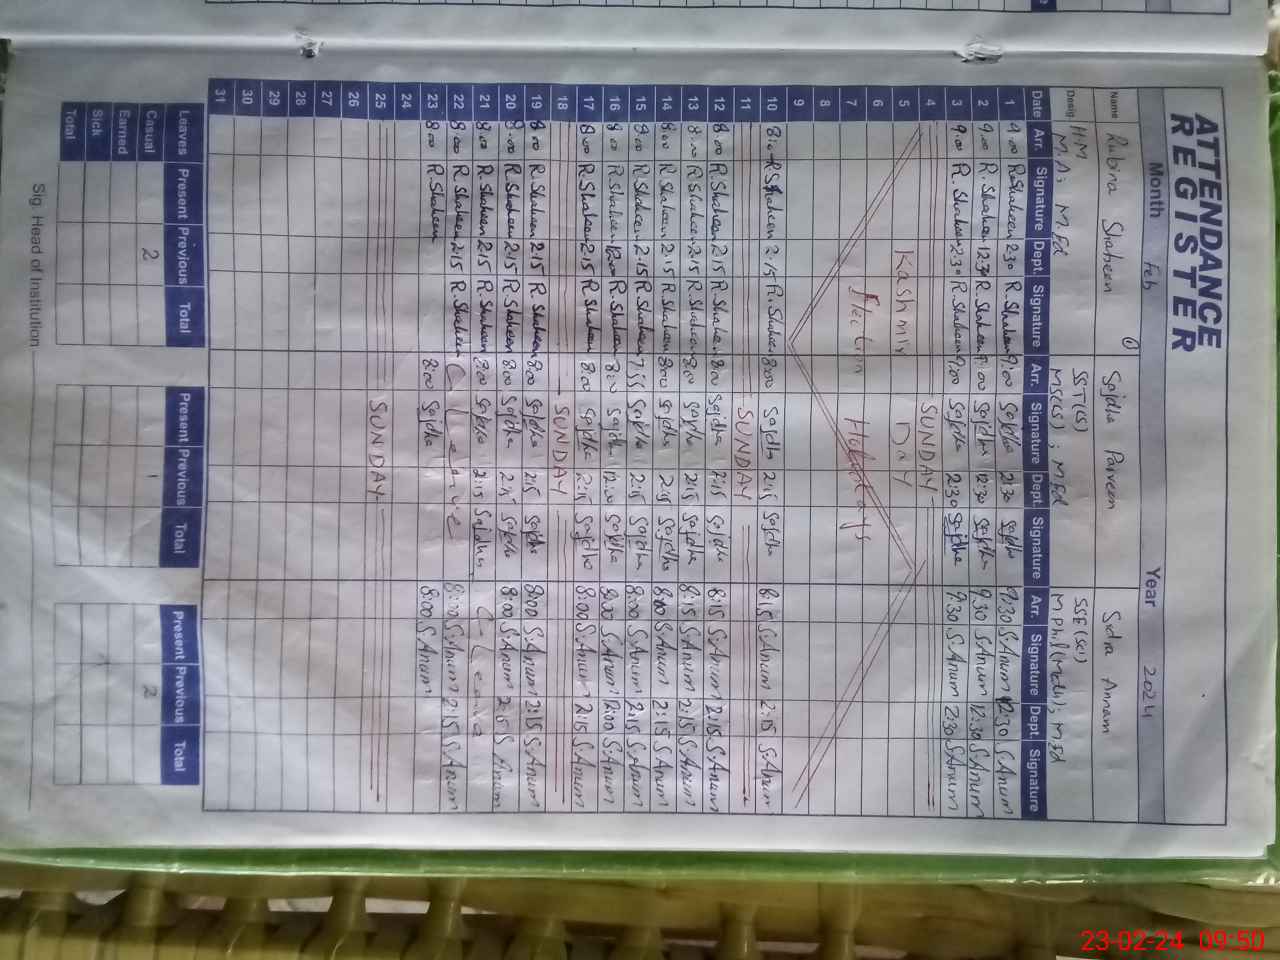 ATTENDANCE
REGISTER
Month Feb Year 2024
Name Rubina Shaheen Sajdha Parveen Sidra Annam
Desig H.M SST(S) SSE(Sci)
M.A; M.Ed MSC(S); M.Ed M Phil(Math); M.Ed
Date Arr. Signature Dept. Signature Arr. Signature Dept. Signature Arr. Signature Dept. Signature
1 9.00 R.Shaheen 2.30 R.Shaheen 9:00 Sajdha 2:30 Sajdha 9:30 S.Anum 2:30 S.Anum
2 9.00 R.Shaheen 12.30 R.Shaheen 9:00 Sajdha 12:30 Sajdha 9:30 S.Anum 12:30 S.Anum
3 9.00 R.Shaheen 2.30 R.Shaheen 9:00 Sajdha 2:30 Sajdha 9:30 S.Anum 2:30 S.Anum
4 SUNDAY
5 Kashmir Day
6
7 Election Holidays
8
9
10 R.Shaheen 2.15 R.Shaheen 8:00 Sajdha 2:15 Sajdha 8:15 S.Anum 2:15 S.Anum
11 SUNDAY
12 8.00 R.Shaheen 2.15 R.Shaheen 8:00 Sajdha 2:15 Sajdha 8:15 S.Anum 2:15 S.Anum
13 8.00 R.Shaheen 2.15 R.Shaheen 8:00 Sajdha 2:15 Sajdha 8:15 S.Anum 2:15 S.Anum
14 8.00 R.Shaheen 2.15 R.Shaheen 8:00 Sajdha 2:15 Sajdha 8:00 S.Anum 2:15 S.Anum
15 8.00 R.Shaheen 2.15 R.Shaheen 7:55 Sajdha 2:15 Sajdha 8:00 S.Anum 2:15 S.Anum
16 8.00 R.Shaheen 12.00 R.Shaheen 8:00 Sajdha 12:00 Sajdha 8:00 S.Anum 12:00 S.Anum
17 8.00 R.Shaheen 2.15 R.Shaheen 8:00 Sajdha 2:15 Sajdha 8:00 S.Anum 2:15 S.Anum
18 SUNDAY
19 8.00 R.Shaheen 2.15 R.Shaheen 8:00 Sajdha 2:15 Sajdha 8:00 S.Anum 2:15 S.Anum
20 8.00 R.Shaheen 2.15 R.Shaheen 8:00 Sajdha 2:15 Sajdha 8:00 S.Anum 2:15 S.Anum
21 8.00 R.Shaheen 2.15 R.Shaheen 8:00 Sajdha 2:15 Sajdha C-Leave
22 8.00 R.Shaheen 2.15 R.Shaheen C-Leave 8:00 S.Anum 2:15 S.Anum
23 8.00 R.Shaheen 8:00 Sajdha 8:00 S.Anum
24
25 SUNDAY
26
27
28
29
30
31
Leaves Present Previous Total Present Previous Total Present Previous Total
Casual 2 1 2
Earned
Sick
Total
Sig. Head of Institution
23-02-24 09:50